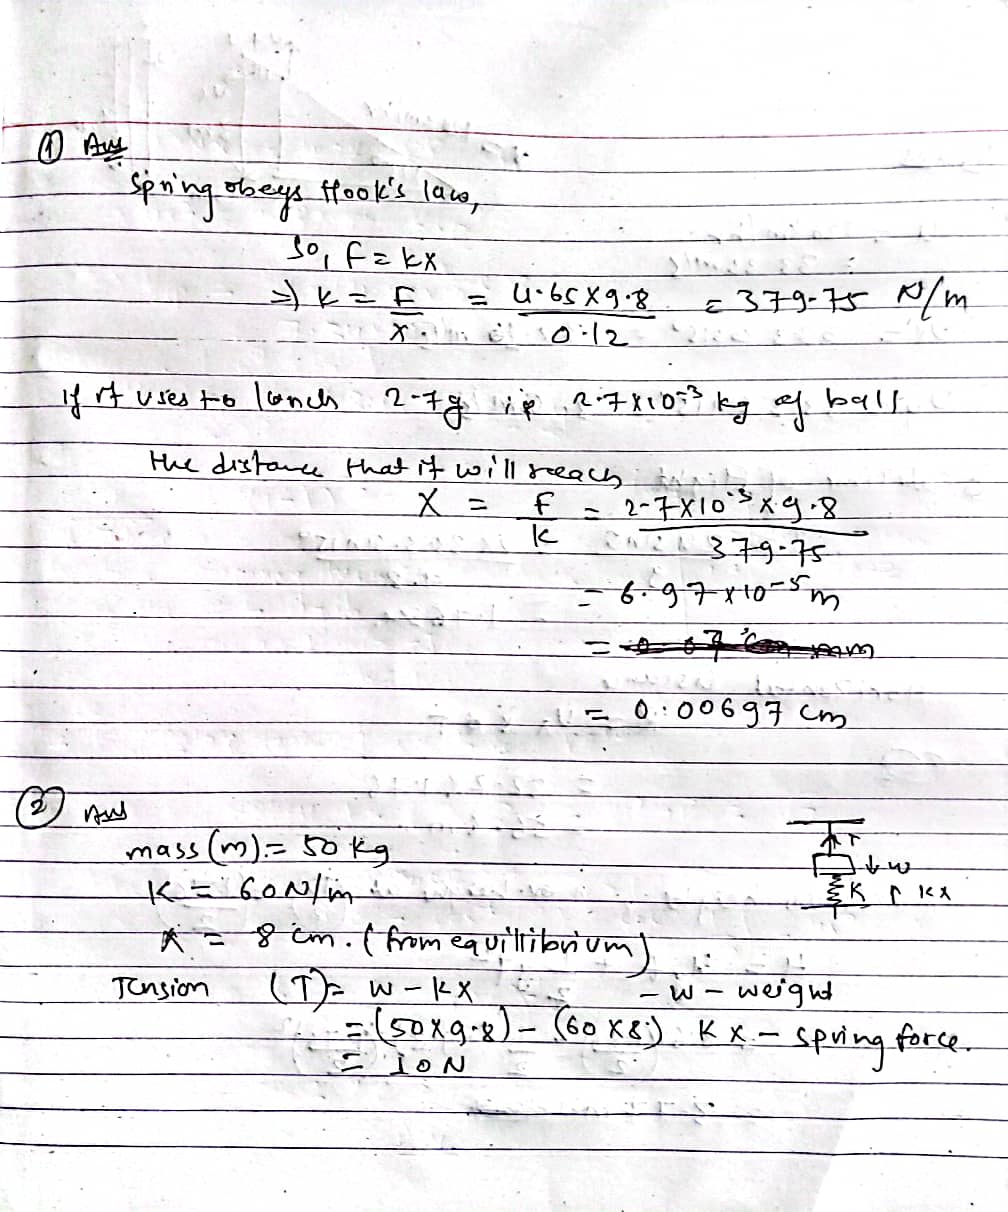 ① Ans
Spring obeys Hook's law,
So, F = kx
⇒ k = F/x = 4.65 x 9.8 / 0.12 = 379.75 N/m
if it uses to lanch 2.7g ie 2.7 x 10⁻³ kg of ball
the distance that it will reach
X = F/k = 2.7 x 10⁻³ x 9.8 / 379.75
= 6.97 x 10⁻⁵ m
= mm
= 0.00697 cm
② Ans
mass (m) = 50 kg
K = 60 N/m
x = 8 cm. (from equillibrium)
Tension (T) = w - kx - w - weight
= (50 x 9.8) - (60 x 8) Kx - spring force.
= 10 N
T
↓ w
K ↑ kx